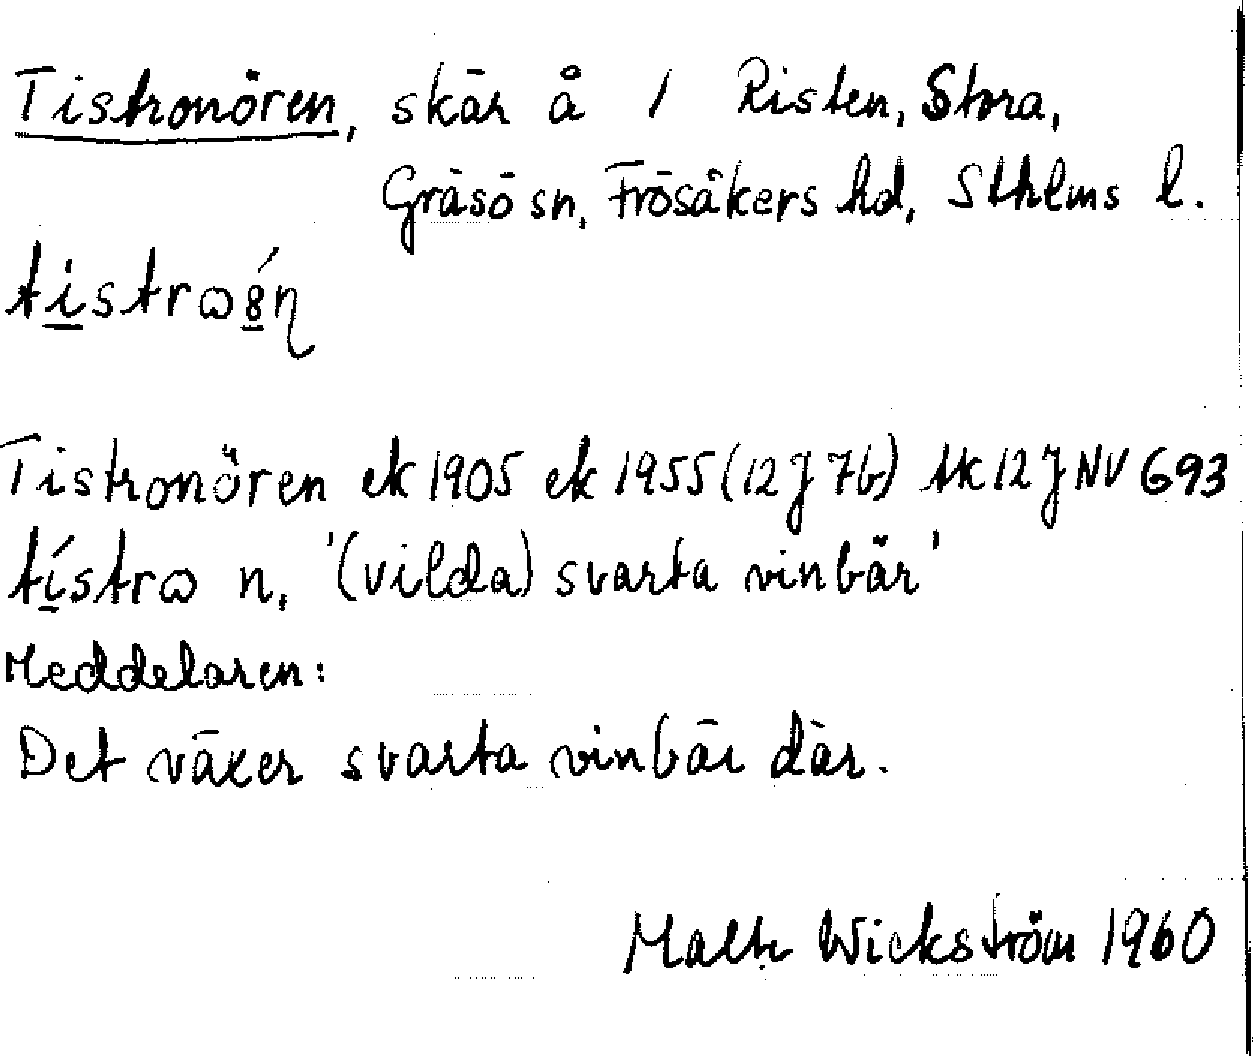 Tistronören, skär å 1 Risten, Stora,
Gräsö sn, Frösåkers hd, Sthlms l.
Tistronören ek 1905 ek 1955 (12 J 7b) tk 12 J NV 693
tístrω n, '(vilda) svarta vinbär'
Meddelaren:
Det växer svarta vinbär där.
Wickström 1960